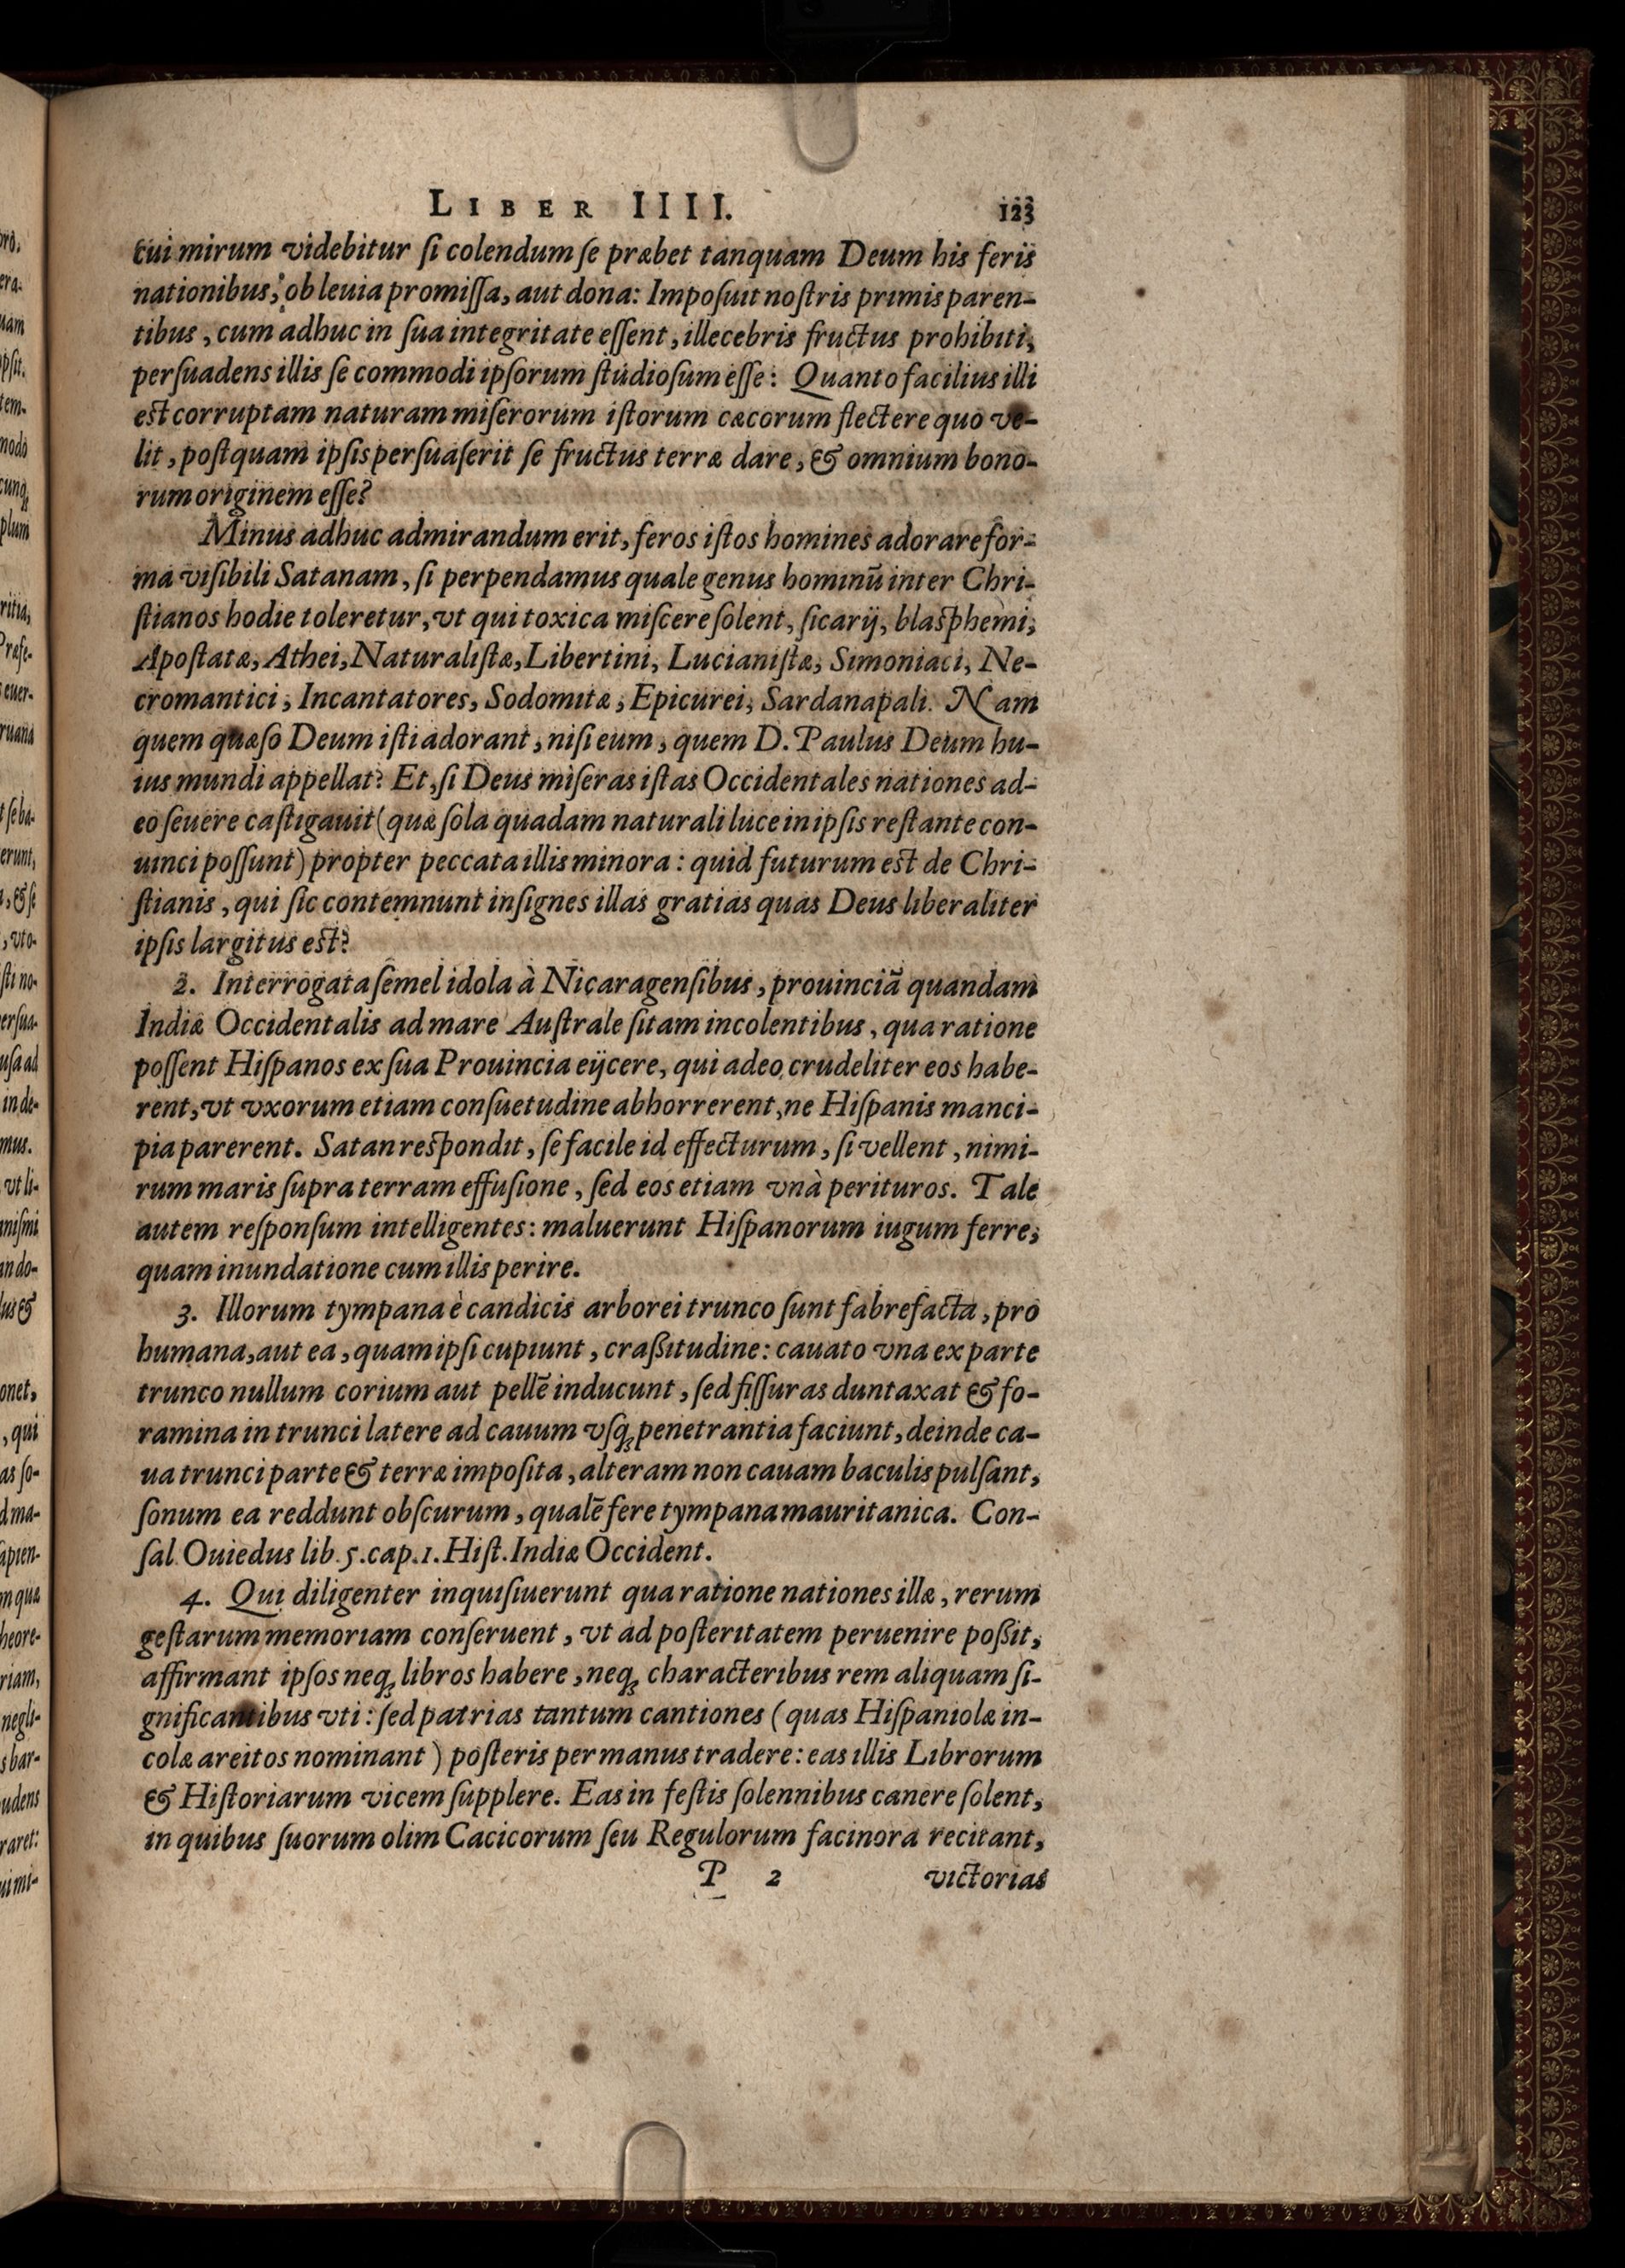 LIBER IIII. 123
cui mirum videbitur ſi colendum ſe præbet tanquam Deum his feris
nationibus, ob leuia promiſſa, aut dona: Impoſuit noſtris primis paren-
tibus, cum adhuc in ſua integritate eſſent, illecebris fructus prohibiti,
perſuadens illis ſe commodi ipſorum ſtudioſum eſſe: Quanto facilius illi
est corruptam naturam miſerorum iſtorum cæcorum flectere quo ve-
lit, poſtquam ipſis perſuaſerit ſe fructus terræ dare, & omnium bono-
rum originem eſſe?
Minus adhuc admirandum erit, feros iſtos homines adorare for-
ma viſibili Satanam, ſi perpendamus quale genus hominū inter Chri-
ſtianos hodie toleretur, vt qui toxica miſcere ſolent, ſicarij, blasphemi,
Apoſtatæ, Athei, Naturaliſtæ, Libertini, Lucianiſtæ, Simoniaci, Ne-
cromantici, Incantatores, Sodomitæ, Epicurei, Sardanapali. Nam
quem quæſo Deum iſti adorant, niſi eum, quem D. Paulus Deum hu-
ius mundi appellat? Et, ſi Deus miſeras iſtas Occidentales nationes ad-
eo ſeuere caſtigauit (quæ ſola quadam naturali luce in ipſis reſtante con-
uinci poſſunt) propter peccata illis minora: quid futurum est de Chri-
ſtianis, qui ſic contemnunt inſignes illas gratias quas Deus liberaliter
ipſis largitus est?
2. Interrogata ſemel idola à Nicaragenſibus, prouinciā quandam
Indiæ Occidentalis ad mare Auſtrale ſitam incolentibus, qua ratione
poſſent Hiſpanos ex ſua Prouincia eijcere, qui adeo crudeliter eos habe-
rent, vt vxorum etiam conſuetudine abhorrerent, ne Hiſpanis manci-
pia parerent. Satan respondit, ſe facile id effecturum, ſi vellent, nimi-
rum maris ſupra terram effuſione, ſed eos etiam vnà perituros. Tale
autem reſponſum intelligentes: maluerunt Hiſpanorum iugum ferre,
quam inundatione cum illis perire.
3. Illorum tympana è candicis arborei trunco ſunt fabrefacta, pro
humana, aut ea, quam ipſi cupiunt, craßitudine: cauato vna ex parte
trunco nullum corium aut pellē inducunt, ſed fiſſuras duntaxat & fo-
ramina in trunci latere ad cauum vſq; penetrantia faciunt, deinde ca-
ua trunci parte & terræ impoſita, alteram non cauam baculis pulſant,
ſonum ea reddunt obſcurum, qualē fere tympana mauritanica. Con-
ſal Ouiedus lib. 5. cap. 1. Hiſt. Indiæ Occident.
4. Qui diligenter inquiſiuerunt qua ratione nationes illæ, rerum
geſtarum memoriam conſeruent, vt ad poſteritatem peruenire poßit,
affirmant ipſos neq; libros habere, neq; characteribus rem aliquam ſi-
gnificantibus vti: ſed patrias tantum cantiones (quas Hiſpaniolæ in-
colæ areitos nominant) poſteris per manus tradere: eas illis Librorum
& Hiſtoriarum vicem ſupplere. Eas in feſtis ſolennibus canere ſolent,
in quibus ſuorum olim Cacicorum ſeu Regulorum facinora recitant,
P 2 victorias